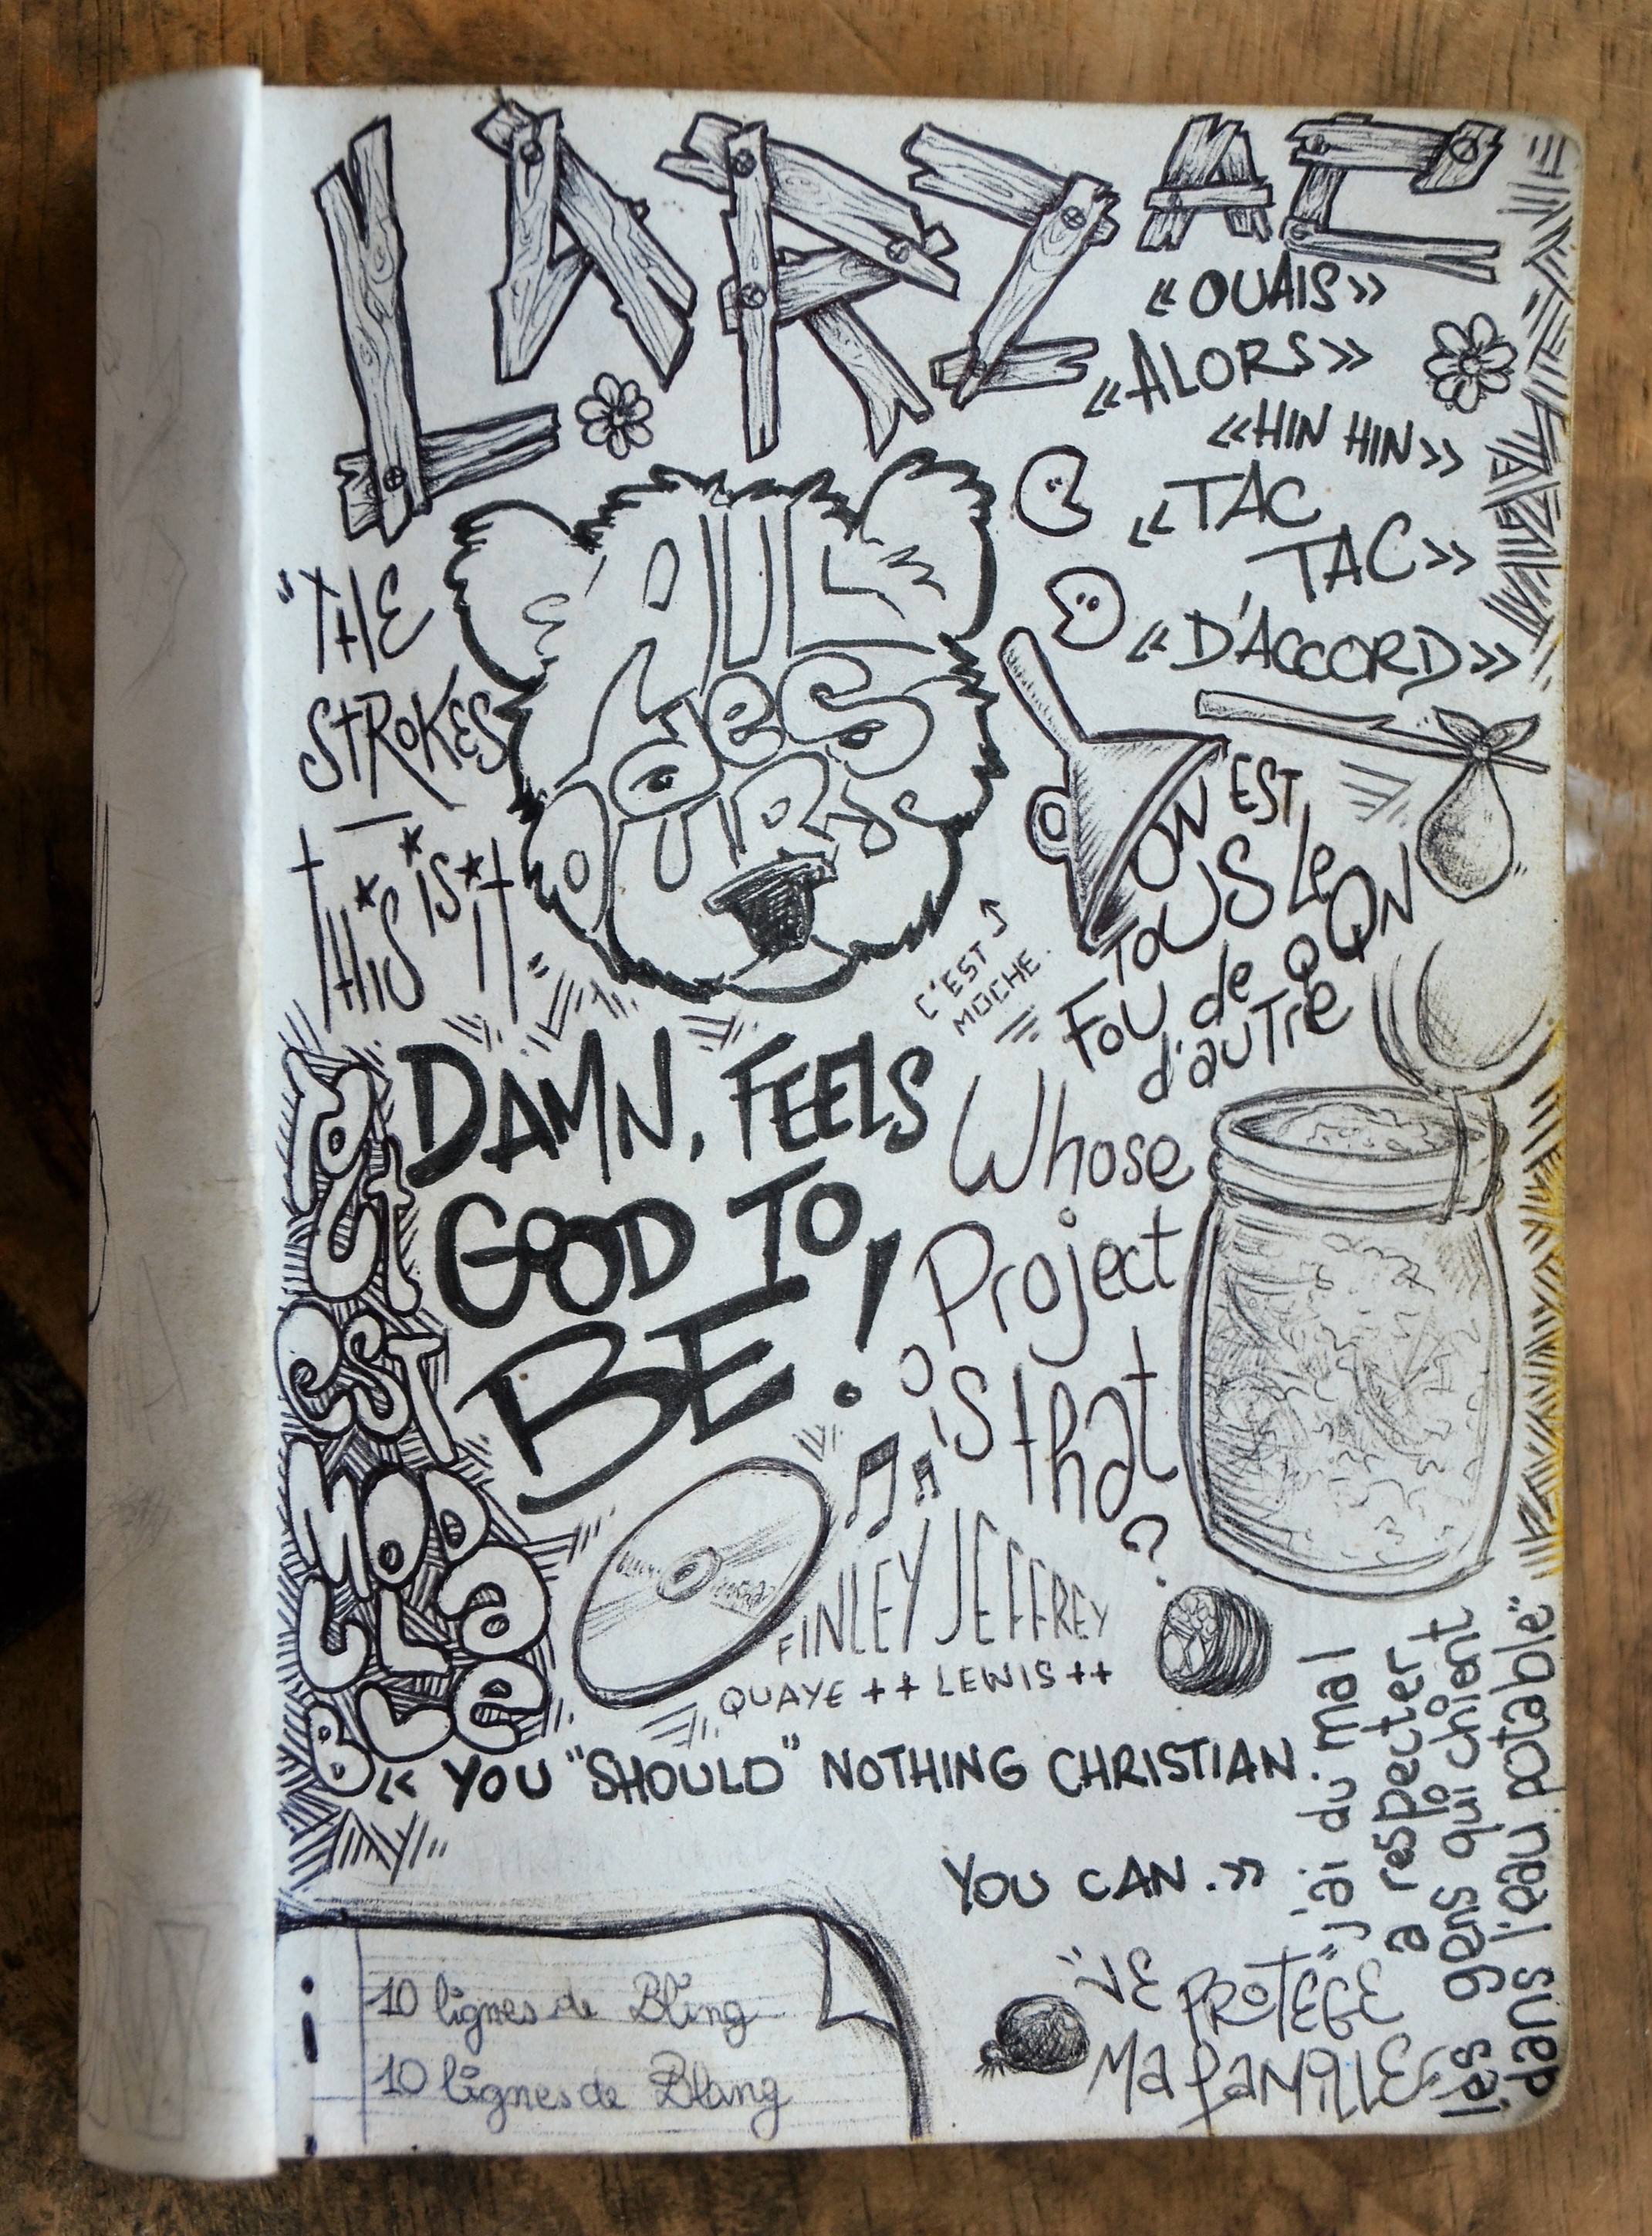 LARZAC
«OUAIS»
«ALORS»
«HIN HIN»
«TAC
TAC»
«D'ACCORD»
"THE
STROKES
—
tHiS iS it"
des
OURS
C'EST
MOCHE.
ON EST
TOUS Le
FOU de qQN
d'auTre
DAMN, FEELS
GOOD TO
BE!
Whose
Project
is that
?
tOUt
esT
MODa
Lle
BLe
FINLEY JEFFREY
QUAYE ++ LEWIS ++
« YOU "SHOULD" NOTHING CHRISTIAN.
YOU CAN.»
"j'ai du mal
à respecter
les gens qui chient
dans l'eau potable"
"JE PROTEGE
Ma FaMiLLE"
10 lignes de Bling
10 lignes de Blang